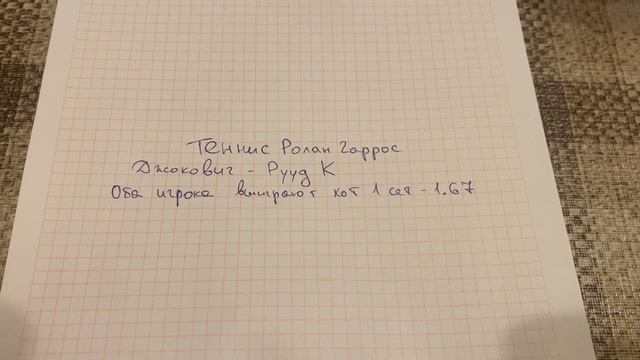 Теннис Ролан Гаррос
Джокович - Рууд К
Оба игрока выиграют хот 1 сет - 1.67